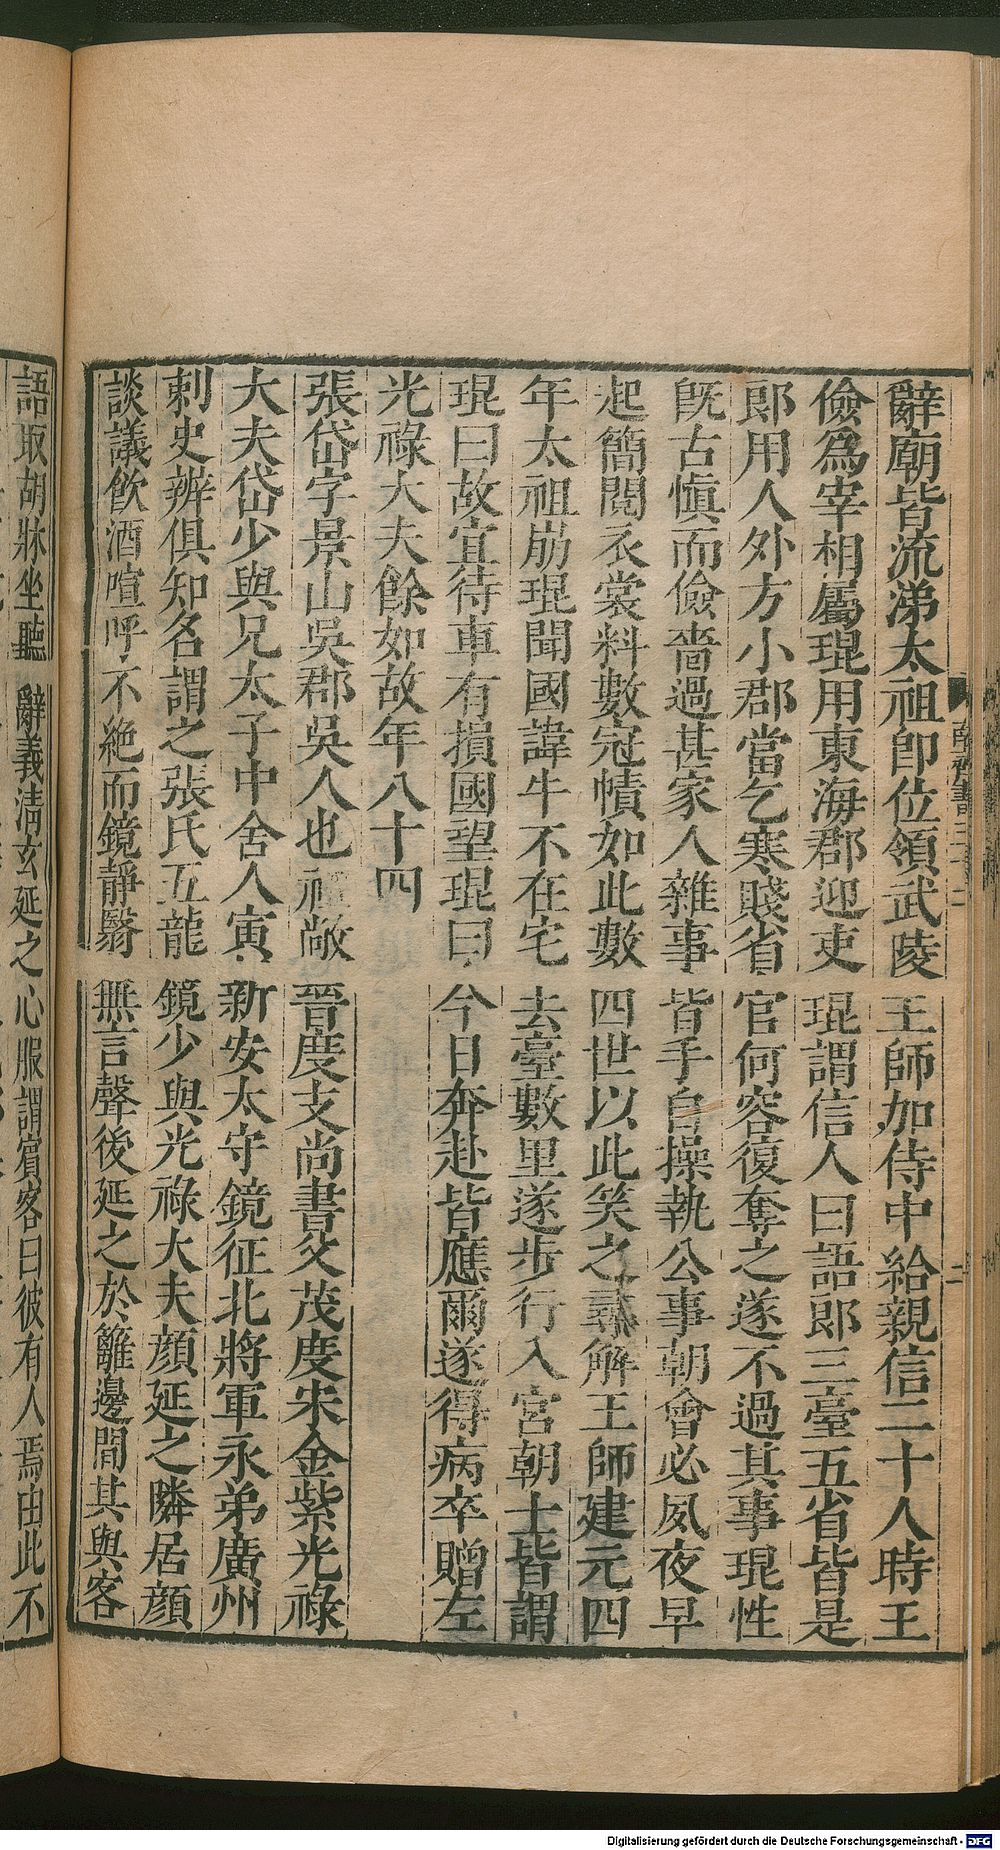 辭廟皆流涕太祖即位領武陵王師加侍中給親信二十人時王
儉爲宰相屬琨用東海郡迎吏琨謂信人曰語郎三臺五省皆是
郎用人外方小郡當乞寒賤省官何容復奪之遂不過其事琨性
旣古慎而儉嗇過甚家人雜事皆手自操執公事朝會必夙夜早
起簡閱衣裳料數冠幘如此數四世以此笑之尋解王師建元四
年太祖崩琨聞國諱牛不在宅去臺數里遂步行入宮朝士皆謂
琨曰故宜待車有損國望琨曰今日奔赴皆應爾遂得病卒贈左
光祿大夫餘如故年八十四
張岱字景山吳郡吳人也祖敞晉度支尚書父茂度宋金紫光祿
大夫岱少與兄太子中舍人寅新安太守鏡征北將軍永弟廣州
刺史辨俱知名謂之張氏五龍鏡少與光祿大夫顏延之隣居顏
談議飲酒喧呼不絕而鏡靜翳無言聲後延之於籬邊聞其與客
語取胡牀坐聽辭義清玄延之心服謂賓客曰彼有人焉由此不
南齊書三十二
二
Digitalisierung gefördert durch die Deutsche Forschungsgemeinschaft - DFG